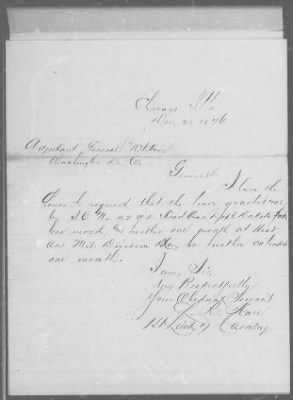 Chicago Ills
Dec. 21 1876.
Adjutant General U.S. Army
Washington D. C.
General
I have the
honor to request that the leave granted me
by S.O. No 167 c.s. Head Qrs Dept Dakota for
one month and
Mil Division be further extended
one month.
I am, Sir,
Very Respectfully
Your Obedient Servant
L. R. Hare
1st Lieut 7 Cavalry